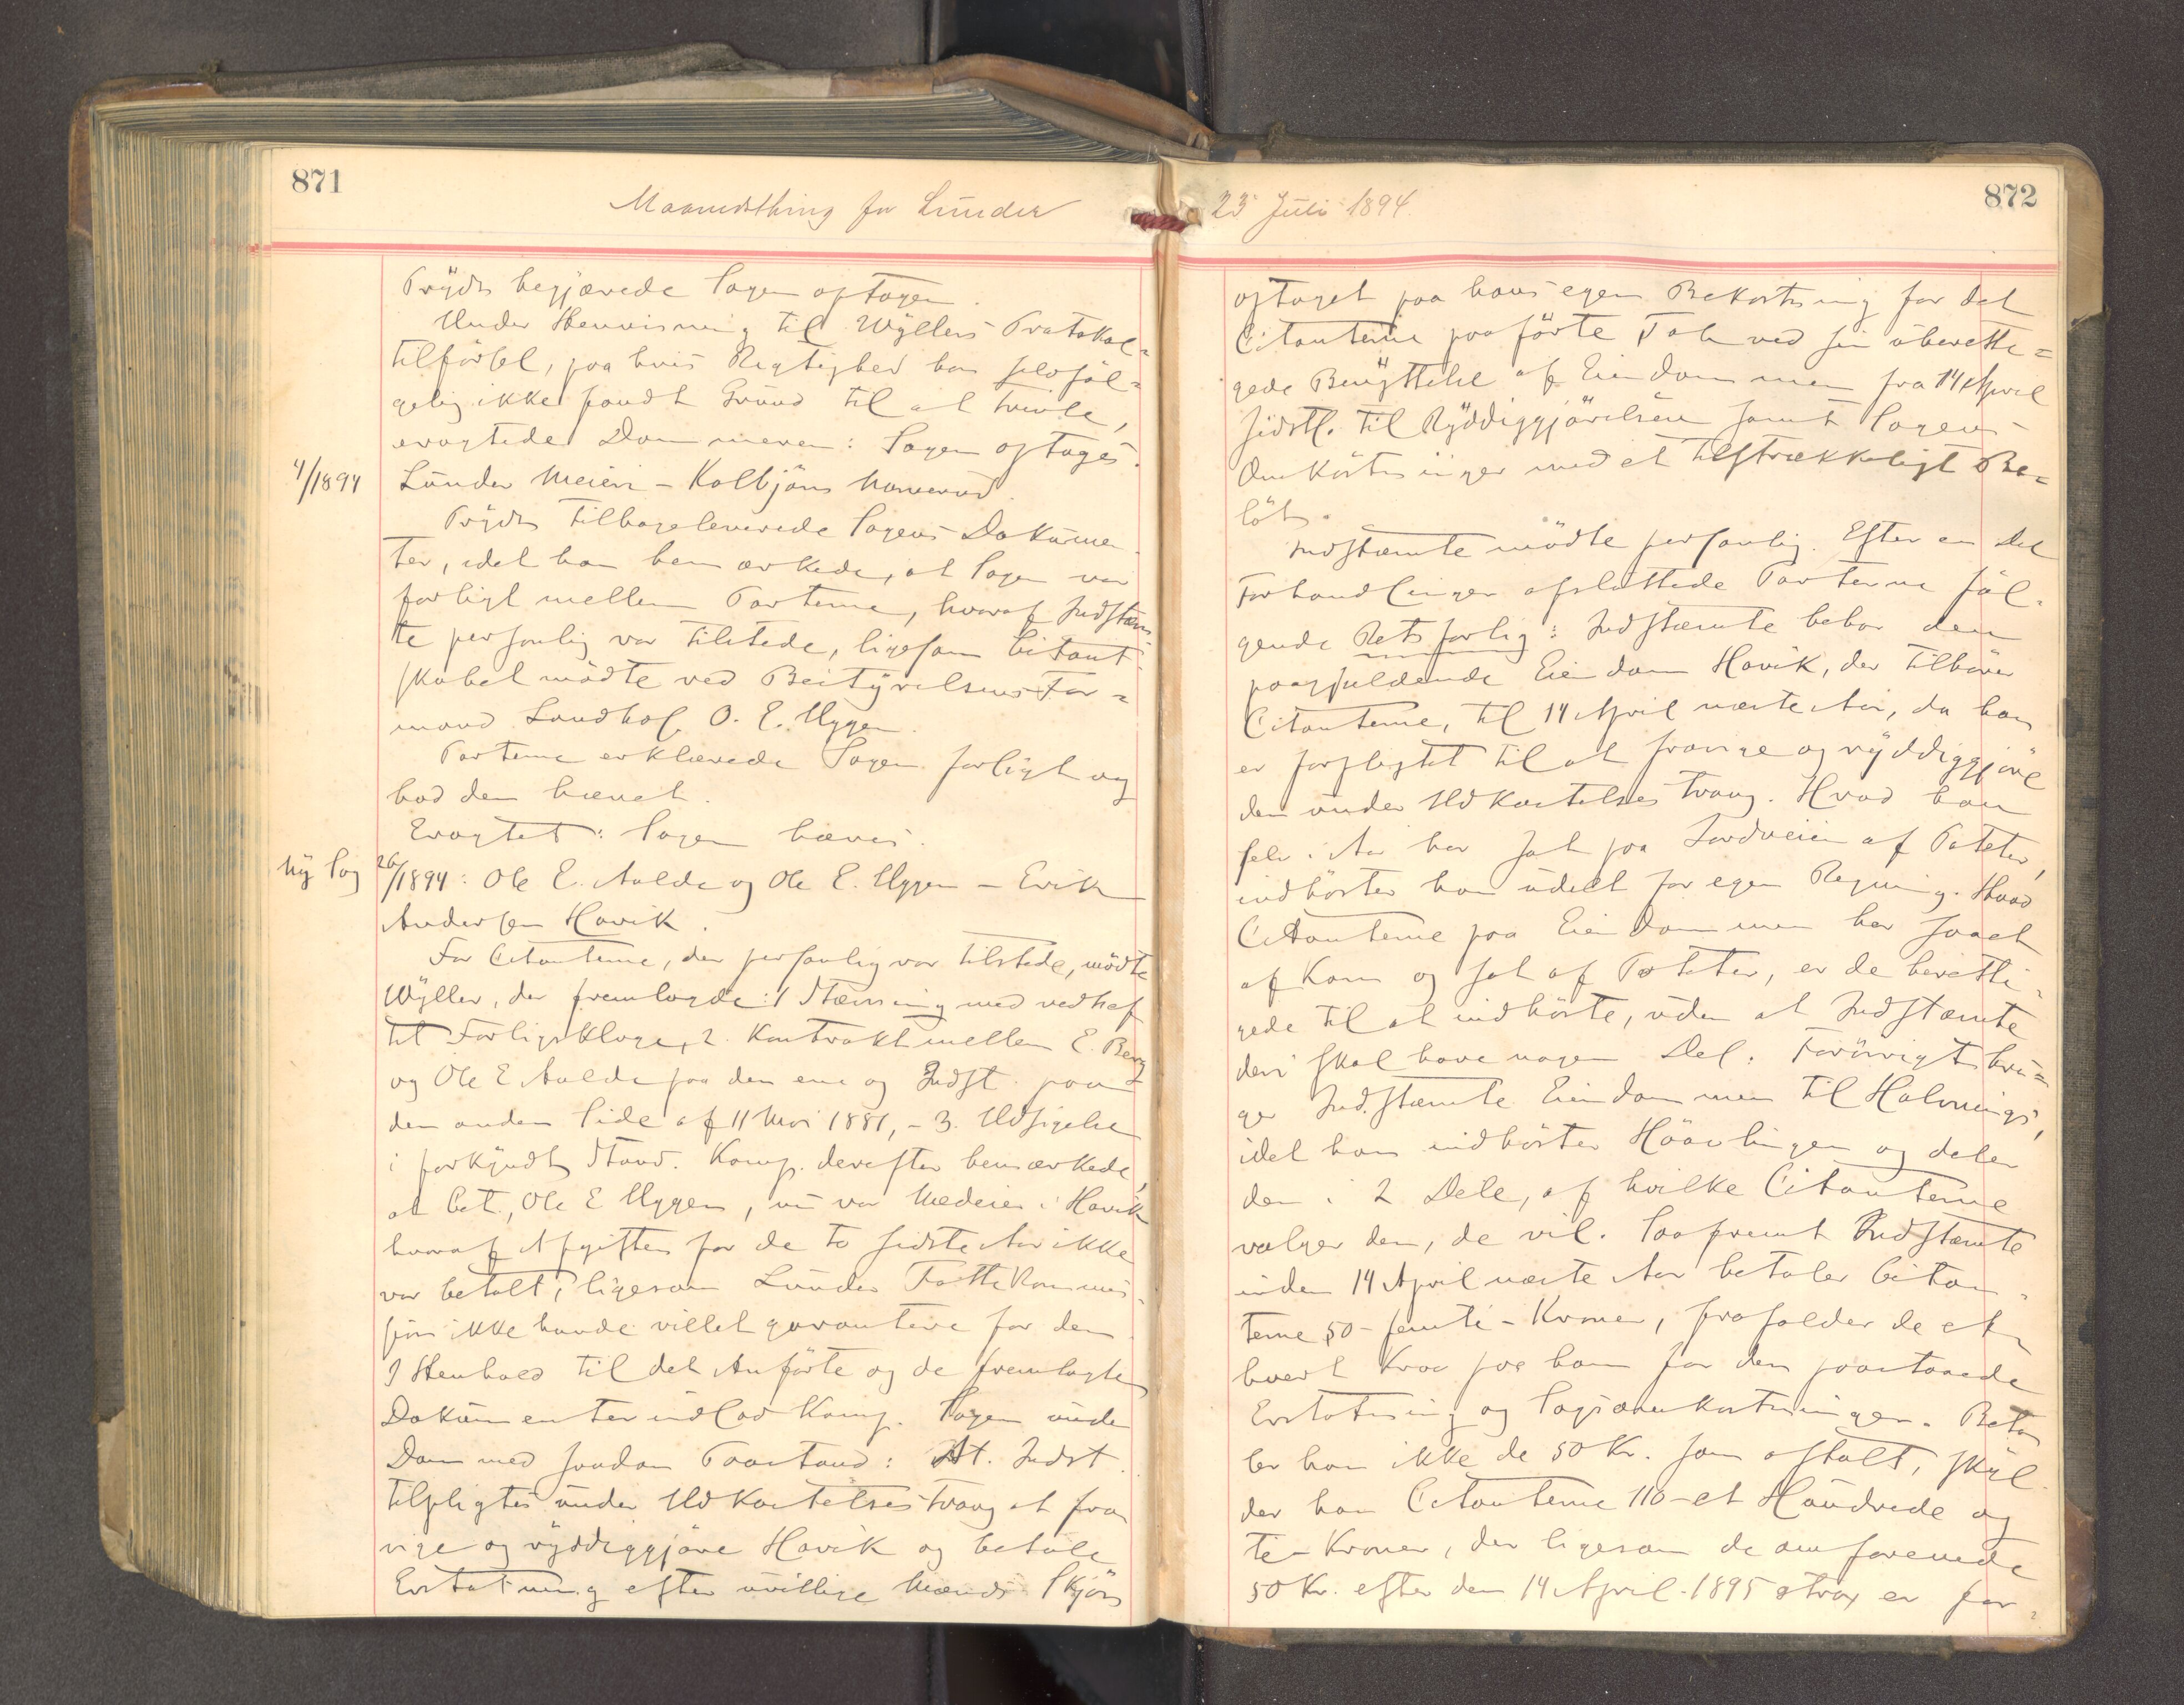 871
Maanedsthing for Lunder
Prydz begjærede Sagen optagen.
Under Henvisning til Wyllers Protokol=
tilførsel, paa hvis Rigtighed han selvføl=
gelig ikke fandt Grund til at tvivle,
eragtede Dommeren: Sagen optages.
4/1894 Lunder Meieri – Kolbjørn
Prydz tilbageleverede Sagens Dokumen
ter, idet han bemærkede, at Sagen var
forligt mellem Parterne, hvoraf Indstævn
te personlig var tilstede, ligesom Citant
skabet mødte ved Bestyrelsens For=
mand Landhdl. O. E. Uggen.
Parterne erklærede Sagen forligt og
bad den hævet.
Eragtet: Sagen hæves.
Ny Sag 26/1894: Ole E. Aalde og Ole E. Uggen – Erik
Andersen Havik.
For Citanterne, der personlig var tilstede, mødte
Wyller, der fremlagde: 1 Stævning med vedhef
tet Forligsklage, 2. Kontrakt mellem E. Berg
og Ole E Aalde paa den ene og Indst. paa
den anden Side af 11 Mai 1881, – 3. Udsigelse
i forkyndt Stand. Komp. derefter bemærkede,
at Cit., Ole E Uggen, nu var Medeier i Havik
hvoraf Afgiften for de to sidste Aar ikke
var betalt, ligesom Lunder Fattikommis-
sion ikke havde villet garantere for den
I Henhold til det Anførte og de fremlagte
Dokumenter indlod Komp. Sagen under
Dom med saadan Paastand: At. Indst.
tilpligtes under Udkastelsestvang at fra
vige og ryddiggjøre Havik og betale
Erstatning efter uvillige Mænds Skjøn
23 Juli 1894.
872
optaget paa hans egen Bekostning for det
Citanterne paaførte Tab ved sin uberetti=
gede Benyttelse af Eiendommen fra 14 April
sidstl. til Ryddiggjørelsen samt Sagens
Omkostninger med et tilstrækkeligt Be=
løb.
Indstævnte mødte personlig. Efter en Del
Forhandlinger afsluttede Parterne føl-
gende Retsforlig: Indstævnte bebor den
paagjældende Eiendom Havik, der tilhører
Citanterne, til 14 April næste Aar, da han
er forpligtet til at fravige og ryddiggjøre
den under Udkastelsestvang. Hvad han
selv i Aar har sat paa Jordveien af Poteter,
indhøster han udelt for egen Regning. Hvad
Citanterne paa Eiendommen har saaet
af Korn og sat af Poteter, er de beretti-
gede til at indhøste, uden at Indstævnte
deri skal have nogen Del. Forøvrigt bru=
ger Indstævnte Eiendommen til Halvnings,
idet han indhøster Høavlingen og deler
den i 2 Dele, af hvilke Citanterne
vælger den, de vil. Saafremt Indstævnte
inden 14 April næste Aar betaler Citan-
terne 50 – femti – Kroner, frafalder de et-
hvert Krav paa ham for den paastaaede
Erstatning og Sagsomkostninger. Beta
ler han ikke de 50 Kr. som aftalt, skyl
der han Citanterne 110 – et Hundrede og
ti – Kroner, der ligesom de omforenede
50 Kr. efter den 14 April 1895 strax er for-